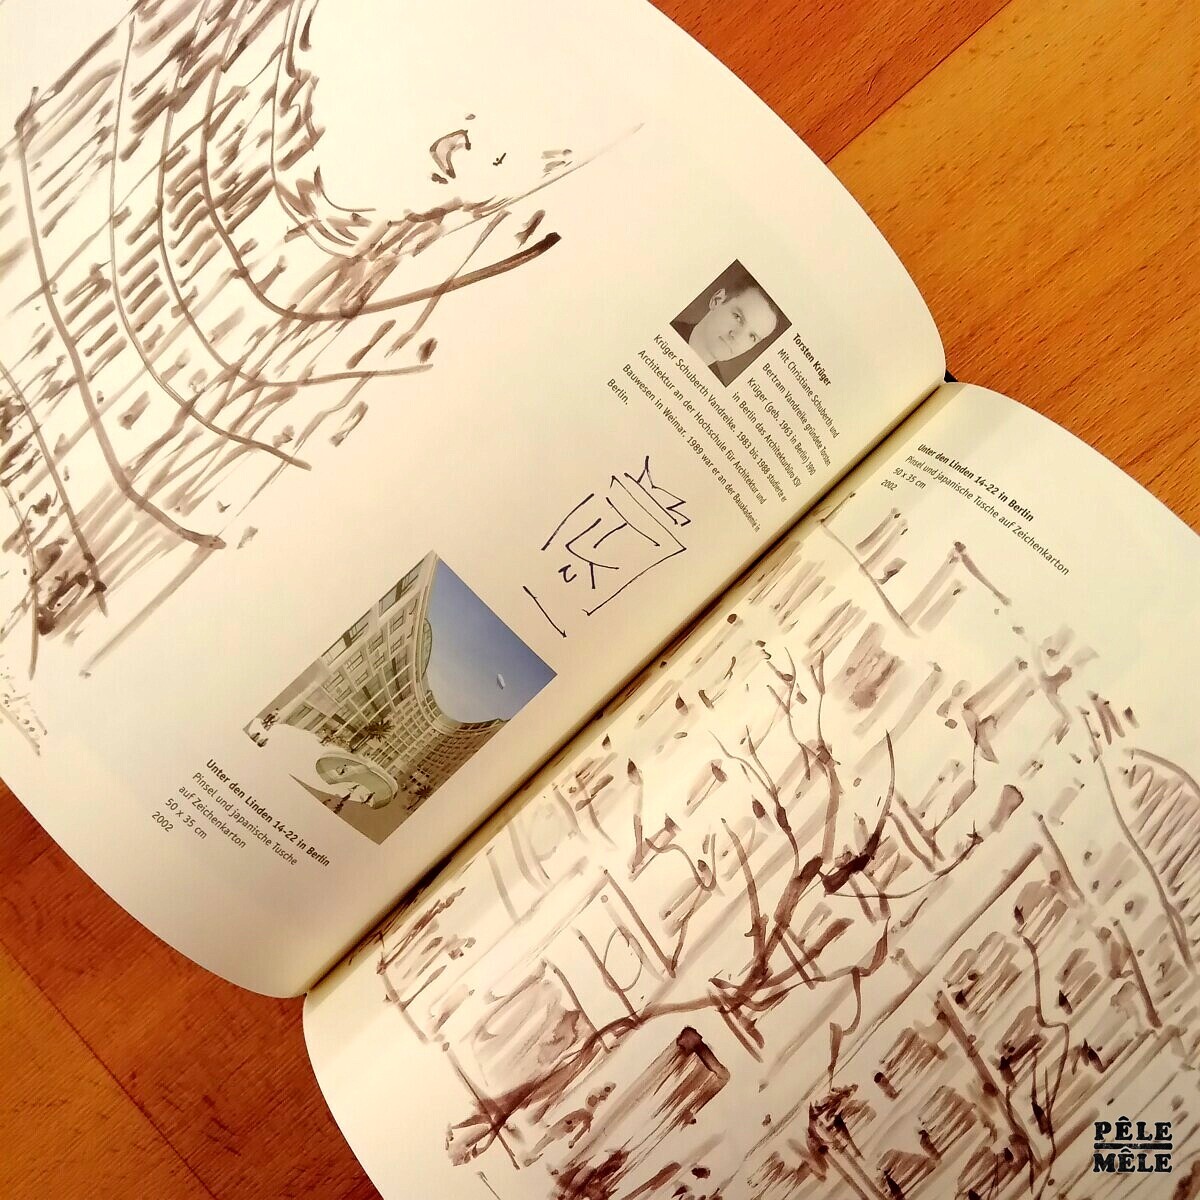 Torsten Krüger
Mit Christiane Schuberth und
Bertram Vandreike gründete Torsten
Krüger (geb. 1963 in Berlin) 1990
in Berlin das Architekturbüro KSV
Krüger Schuberth Vandreike. 1983 bis 1988 studierte er
Architektur an der Hochschule für Architektur und
Bauwesen in Weimar. 1989 war er an der Bauakademie in
Berlin.
Unter den Linden 14-22 in Berlin
Pinsel und japanische Tusche
auf Zeichenkarton
50 x 35 cm
2002
Unter den Linden 14-22 in Berlin
Pinsel und japanische Tusche auf Zeichenkarton
50 x 35 cm
2002
PÊLE
MÊLE